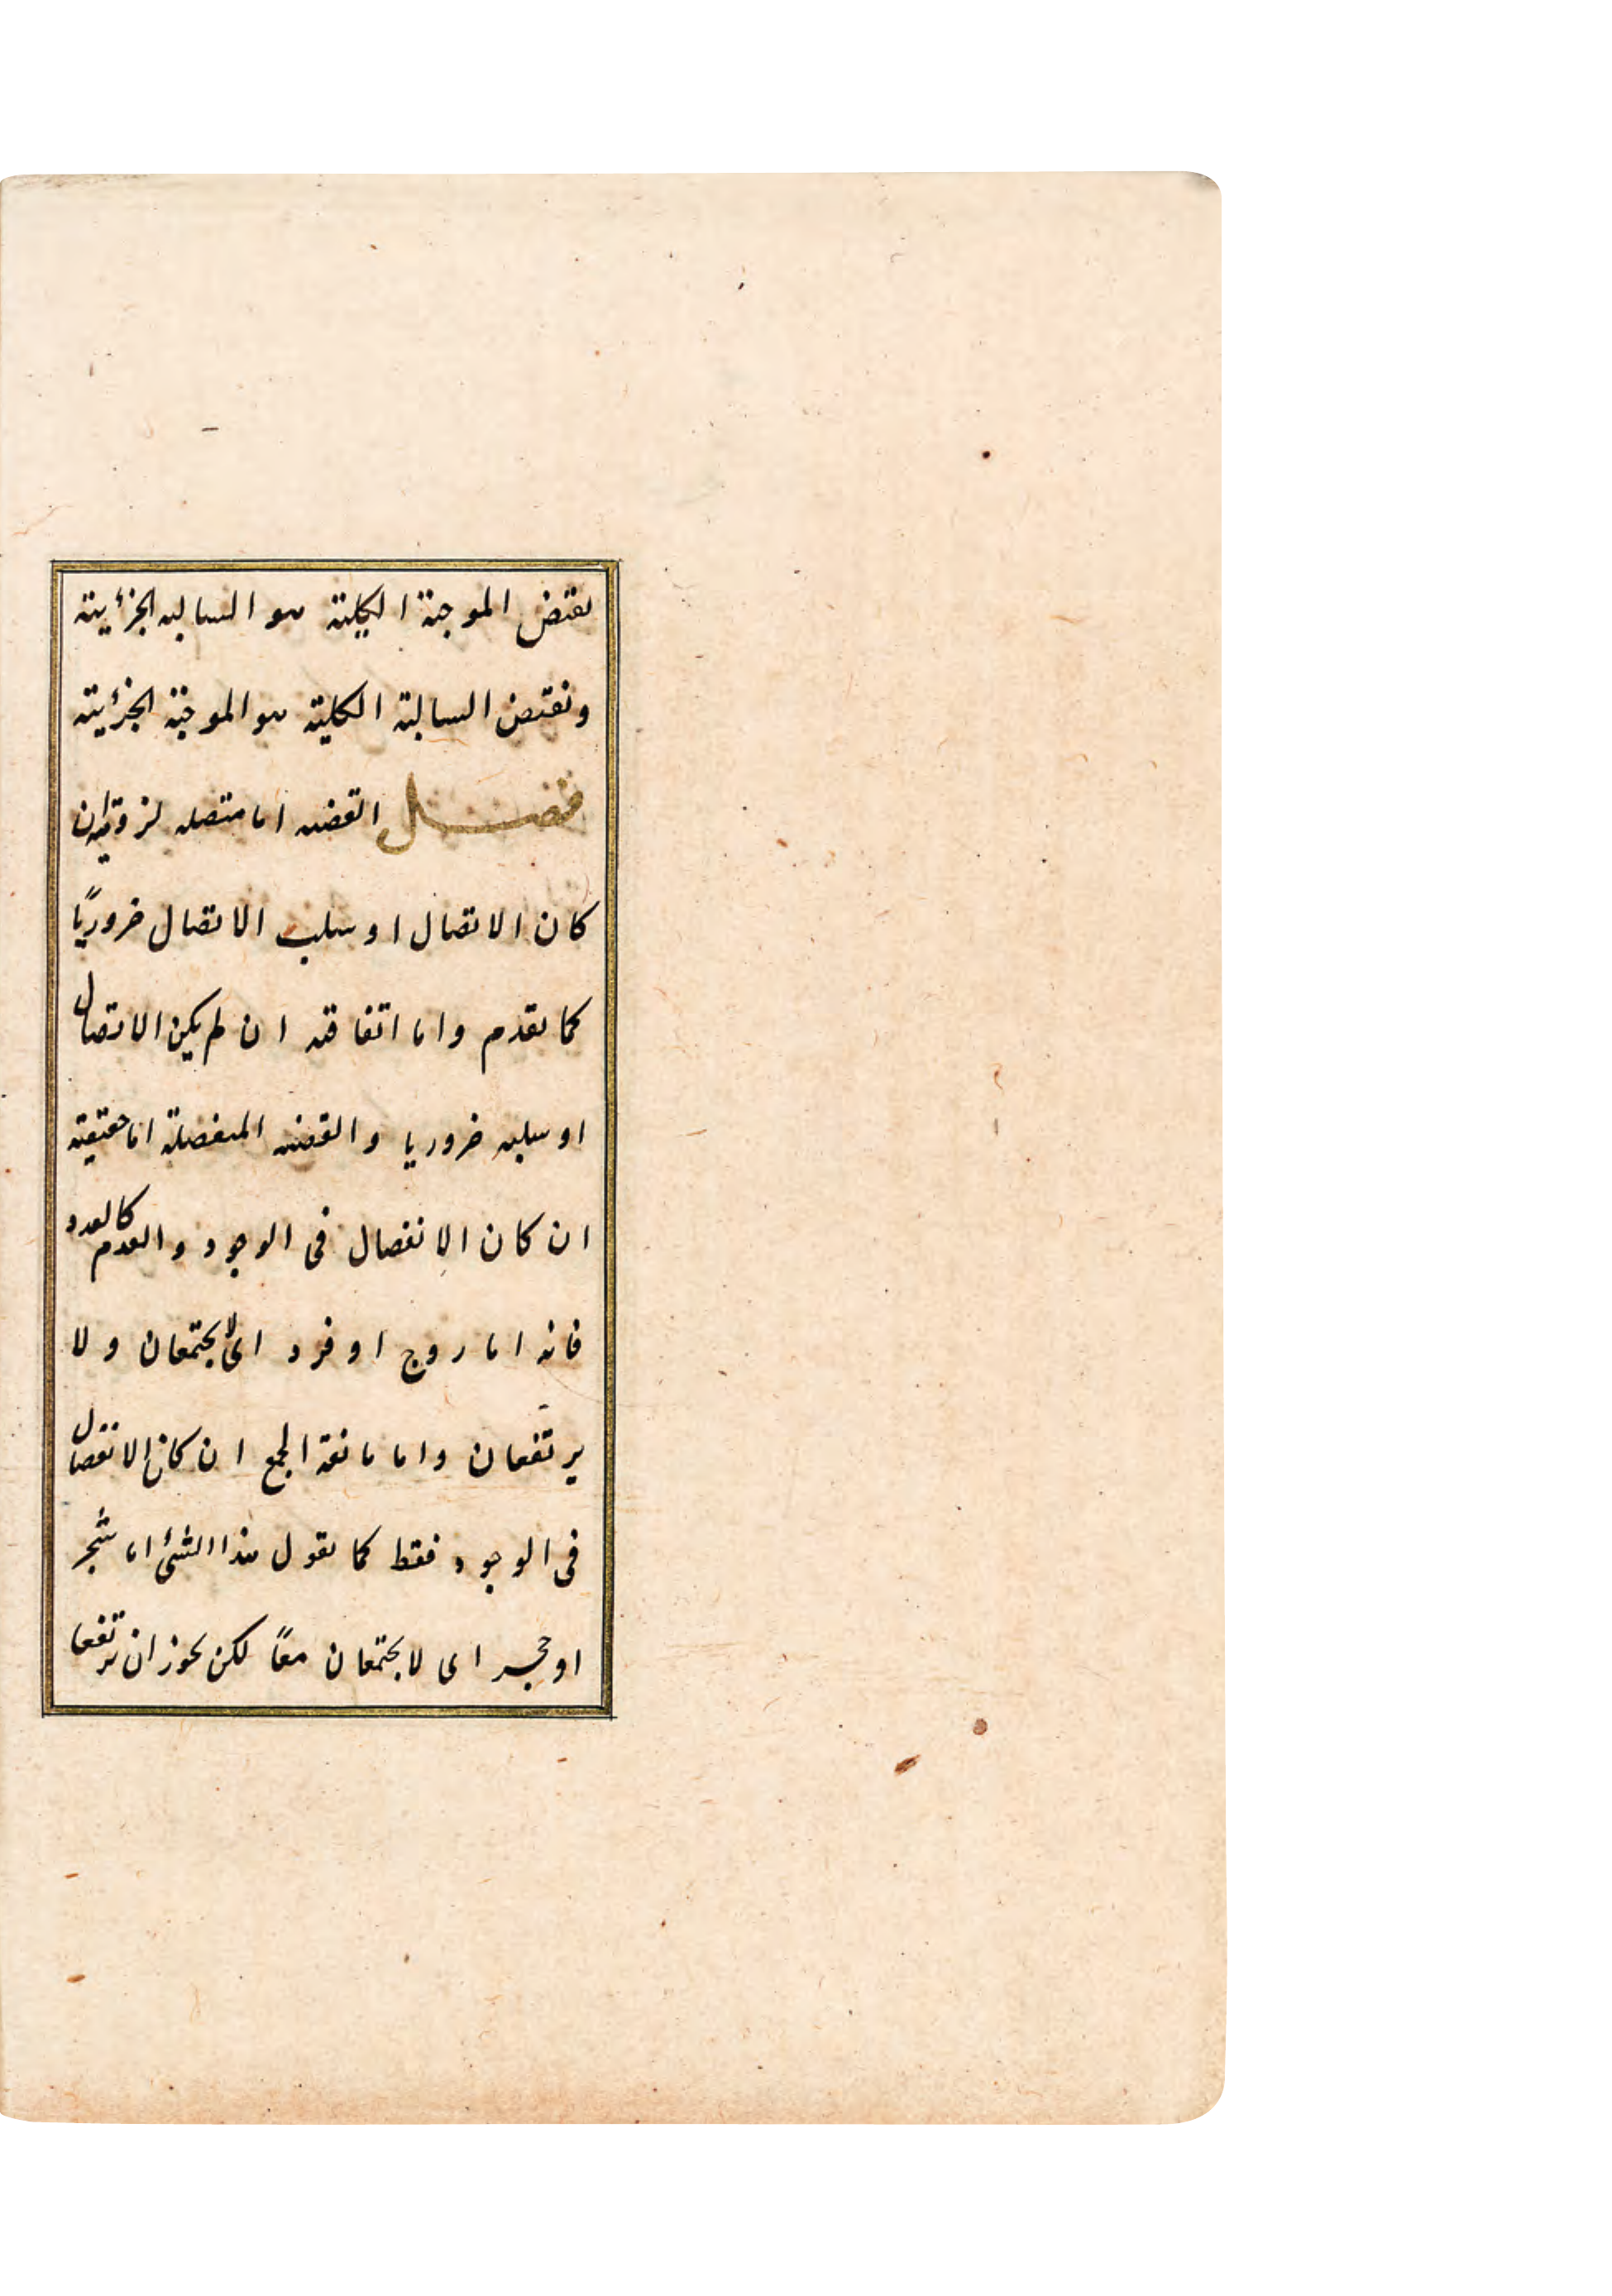 نقیض الموجبة الکلیة هو السالبه الجزئیة
ونقیض السالبة الکلیة هو الموجبة الجزئیة
فصل القضیه اما متصله لزومیه ان
کان الاتصال او سلب الاتصال ضروریًا
کما تقدم واما اتفاقیه ان لم یکن الاتصال
او سلبه ضروریا والقضیه المنفصلة اما حقیقیة
ان کان الانفصال فی الوجود والعدم کالعدد
فانه اما زوج او فرد ای لا یجتمعان ولا
یرتفعان واما مانعة الجمع ان کان الانفصال
فی الوجود فقط کما تقول هذا الشئ اما شجر
او حجر ای لا یجتمعان معًا لکن یجوز ان یرتفعا